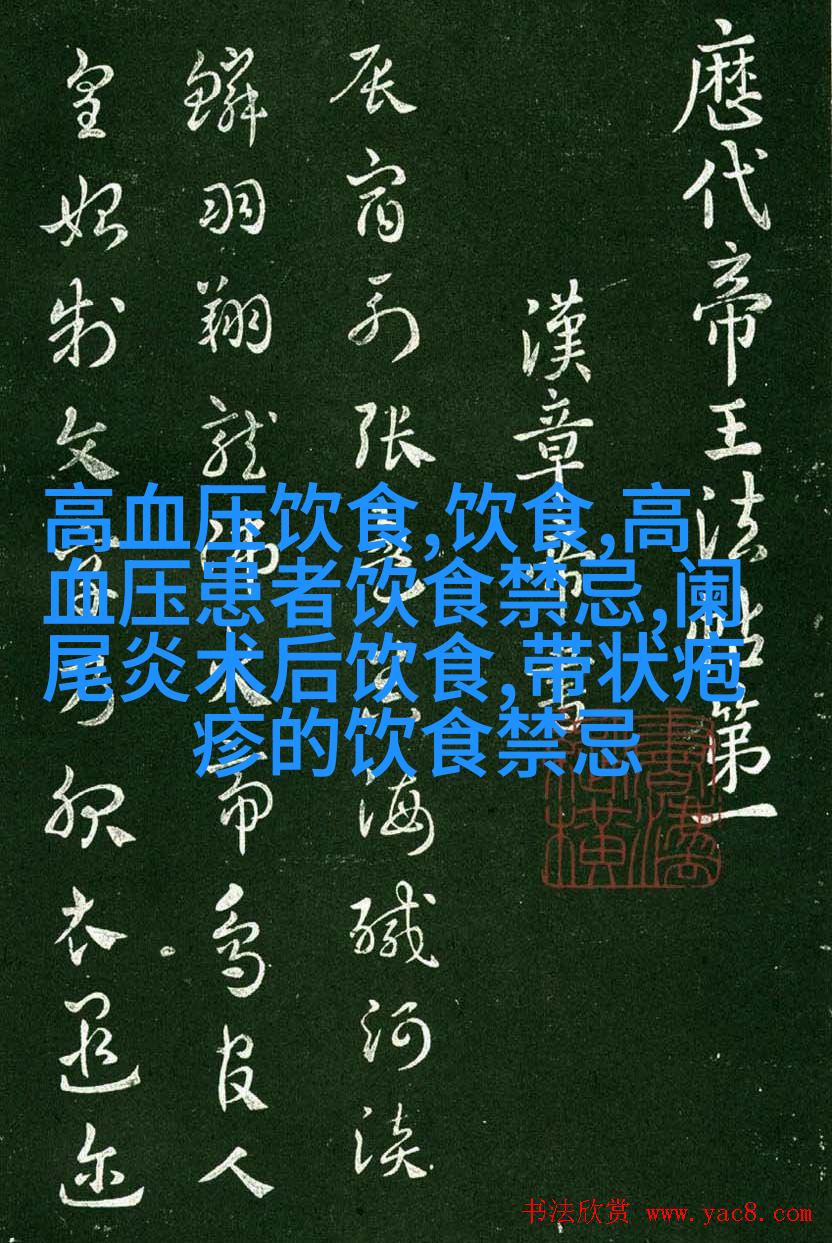 歷代帝王法帖第一
漢章帝書
辰宿列張海鹹河淡
鱗羽翔龍師火帝鳥官人
皇始制文字乃服衣遐邇
高血压饮食,饮食,高
血压患者饮食禁忌,阑
尾炎术后饮食,带状疱
疹的饮食禁忌
书法欣赏 www.yac8.com